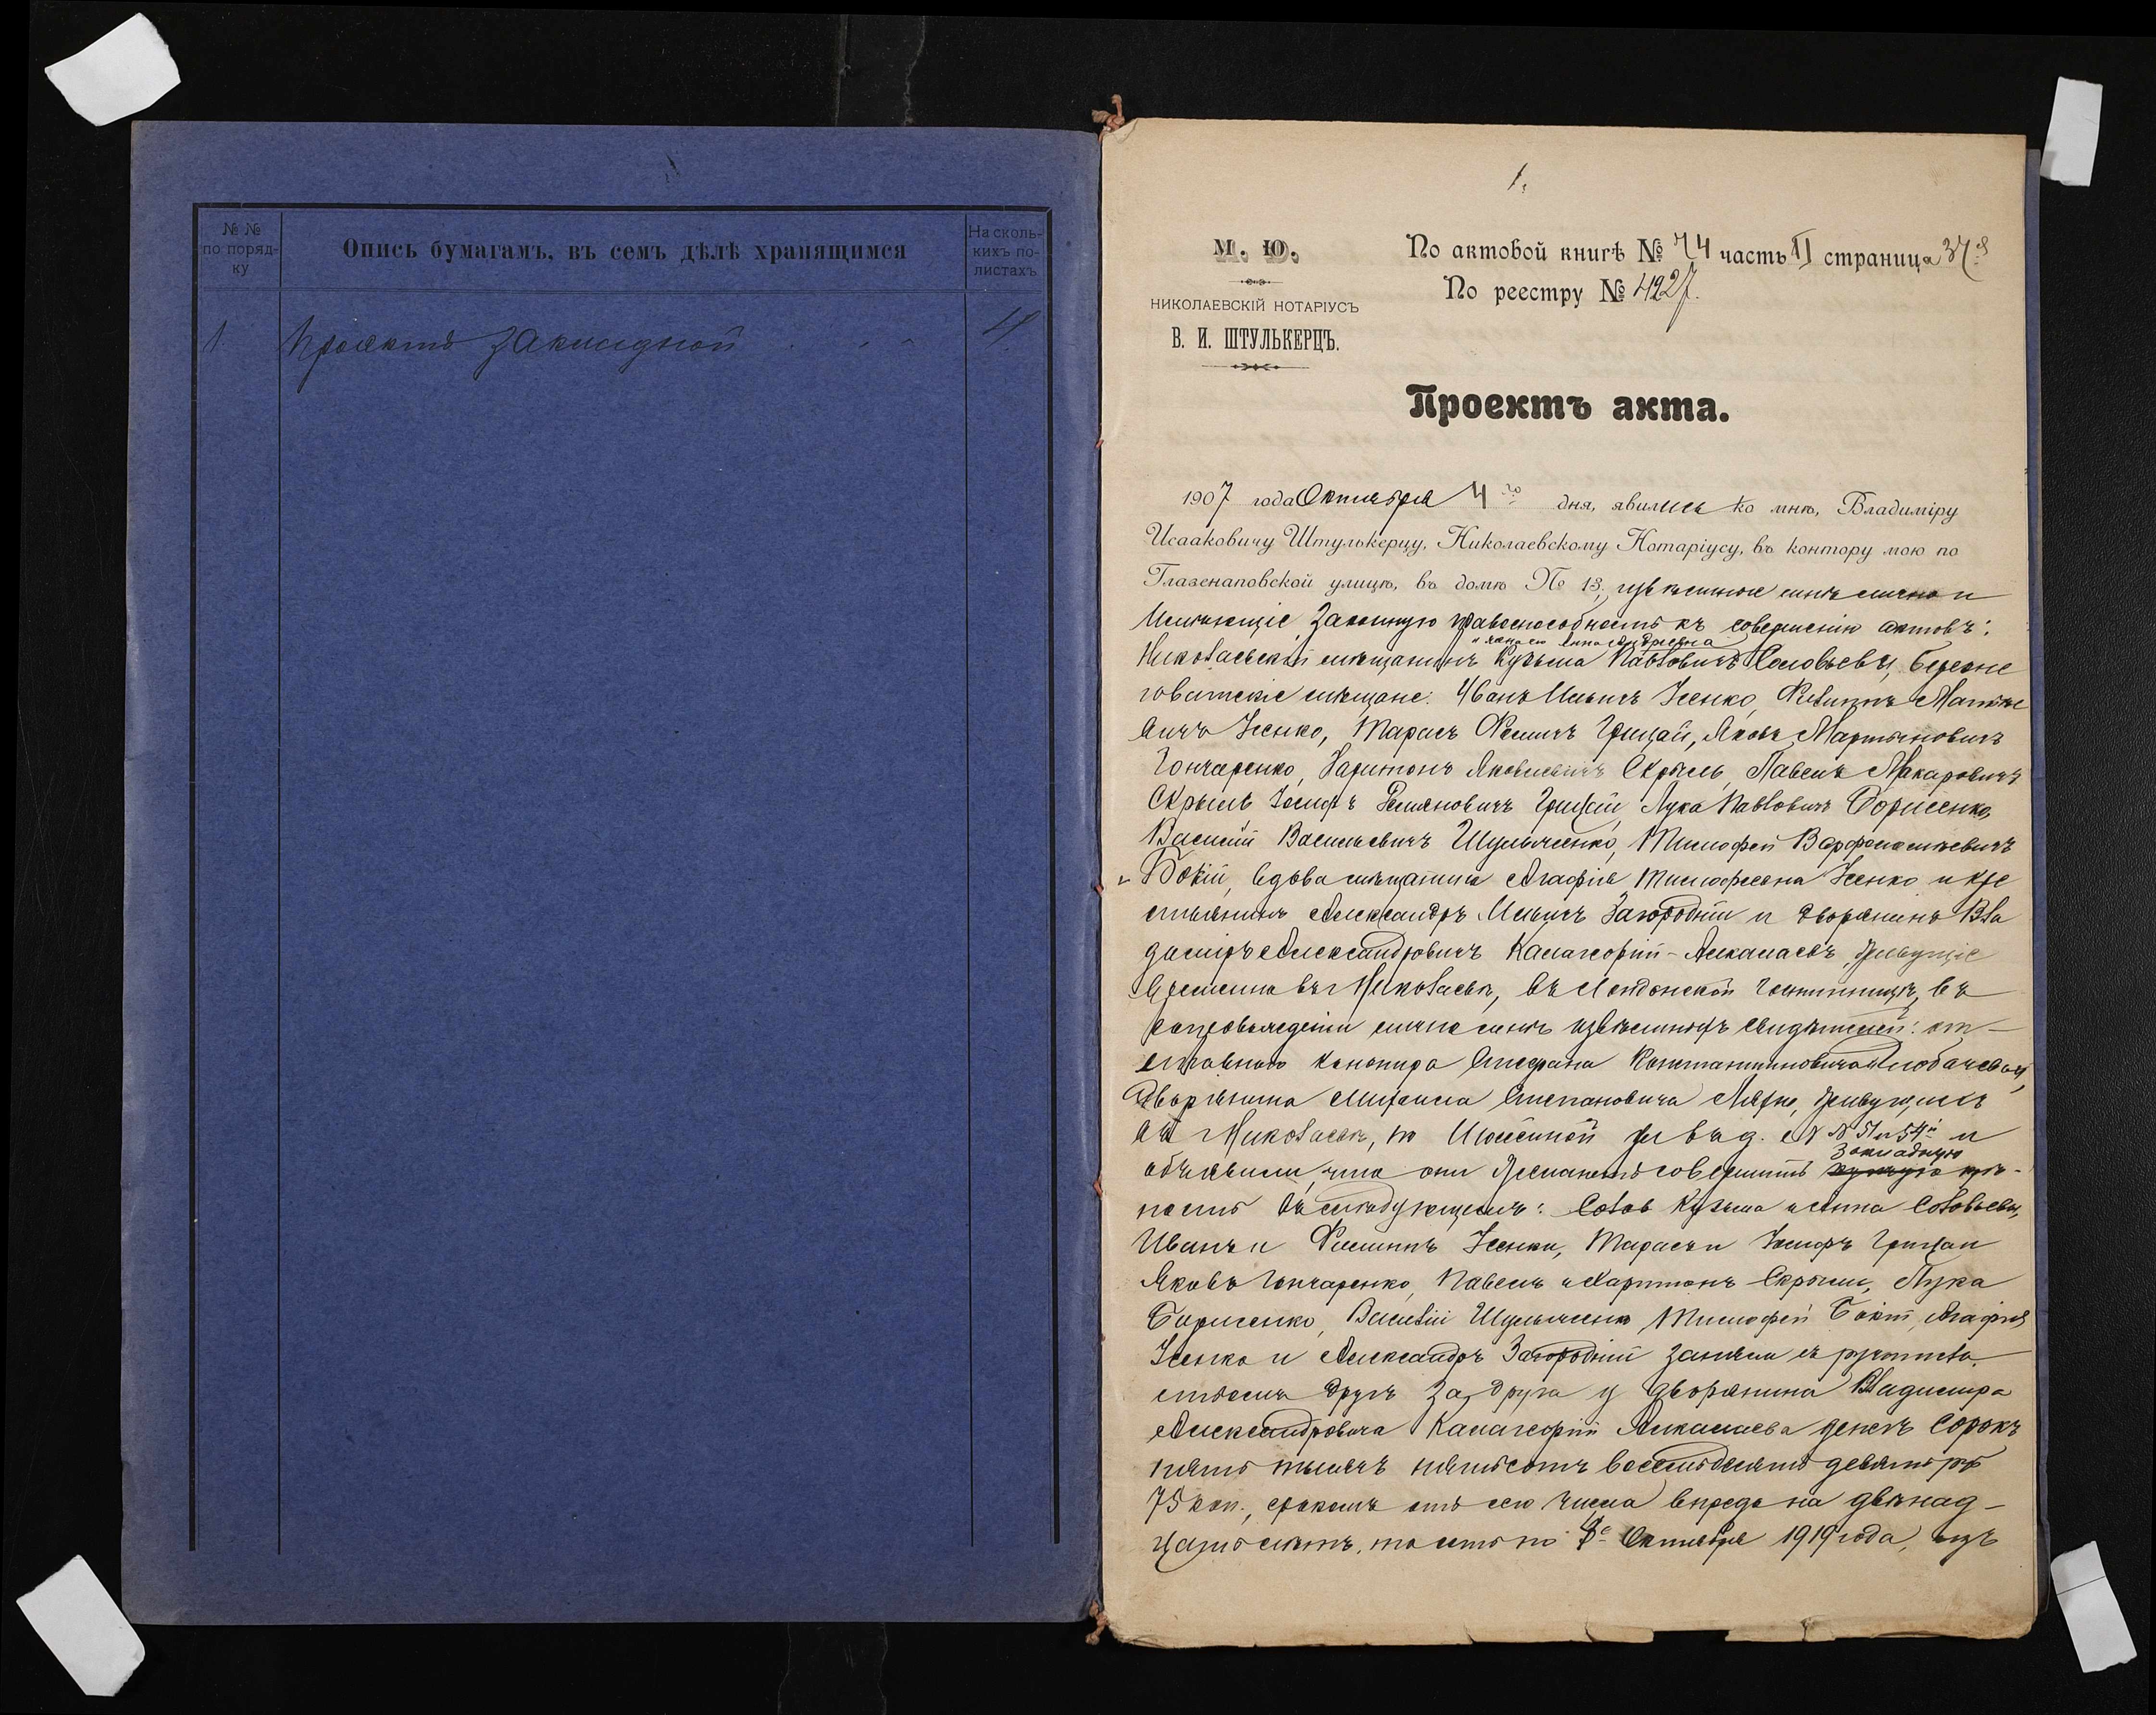 № №
по поряд-
ку
Опись бумагамъ, въ семъ дѣлѣ хранящимся
На сколь-
кихъ по-
листахъ
1. Проектъ закладной 4
1.
М. Ю.
НИКОЛАЕВСКІЙ НОТАРІУСЪ
В. И. ШТУЛЬКЕРЦЪ.
По актовой книгѣ № 74 часть II страница 37
По реестру № 4927.
Проектъ акта.
1907 года Октября 4го дня, явились ко мнѣ, Владиміру
Исааковичу Штулькерцу, Николаевскому Нотаріусу, въ контору мою по
Глазенаповской улицѣ, въ домѣ № 13, извѣстные мнѣ лично и
имѣющіе законную правоспособность къ совершенію актовъ:
и жена его Анна Андреевна
Николаевскій мѣщанинъ Кузьма Павловичъ Соловьевы, Березне
говатскіе мѣщане: Иванъ Ильичъ Усенко, Филиппъ Матвѣе
вичъ Усенко, Тарасъ Грицай, Яковъ Мартыновичъ
Гончаренко, Харитонъ Яковлевичъ Скрыль, Павелъ Макаровичъ
Скрыль, Іосифъ Грицай, Лука Павловичъ Борисенко,
Василій Васильевичъ Шульженко, Тимофей Варфоломеевичъ
Бокій, вдова мѣщанина Агафія Тимофеевна Усенко и кре
стьянинъ Александръ Ильичъ Загородній и дворянинъ Вла
диміръ Александровичъ Калагеоргій-Алкалаевъ, живущіе
временно въ г. Николаевѣ, въ Лондонской гостинницѣ, въ
сопровожденіи лично мнѣ извѣстныхъ свидѣтелей: от-
ставного канонира Стефана Константиновича
дворянина Михаила Степановича живущихъ
въ г. Николаевѣ, по ул. въ д. № № 51 и 54й и
закладную
объявили, что они желаютъ совершить купчую крѣ-
пость въ слѣдующемъ: Кузьма и Анна Соловьевы,
Иванъ и Филиппъ Усенки, Тарасъ и Іосифъ Грицаи
Яковъ Гончаренко, Павелъ и Харитонъ Скрыли, Лука
Борисенко, Василій Шульженко Тимофей Бокій, Агафія
Усенко и Александръ Загородній заняли съ ручатель
ствомъ другъ за друга у дворянина Владиміра
Александровича Калагеоргій Алкалаева денегъ сорокъ
пять тысячъ пятьсотъ восемьдесятъ девять руб
75 коп., срокомъ отъ сего числа впредь на двѣнад-
цать лѣтъ, то есть по Октября 1919 года, изъ